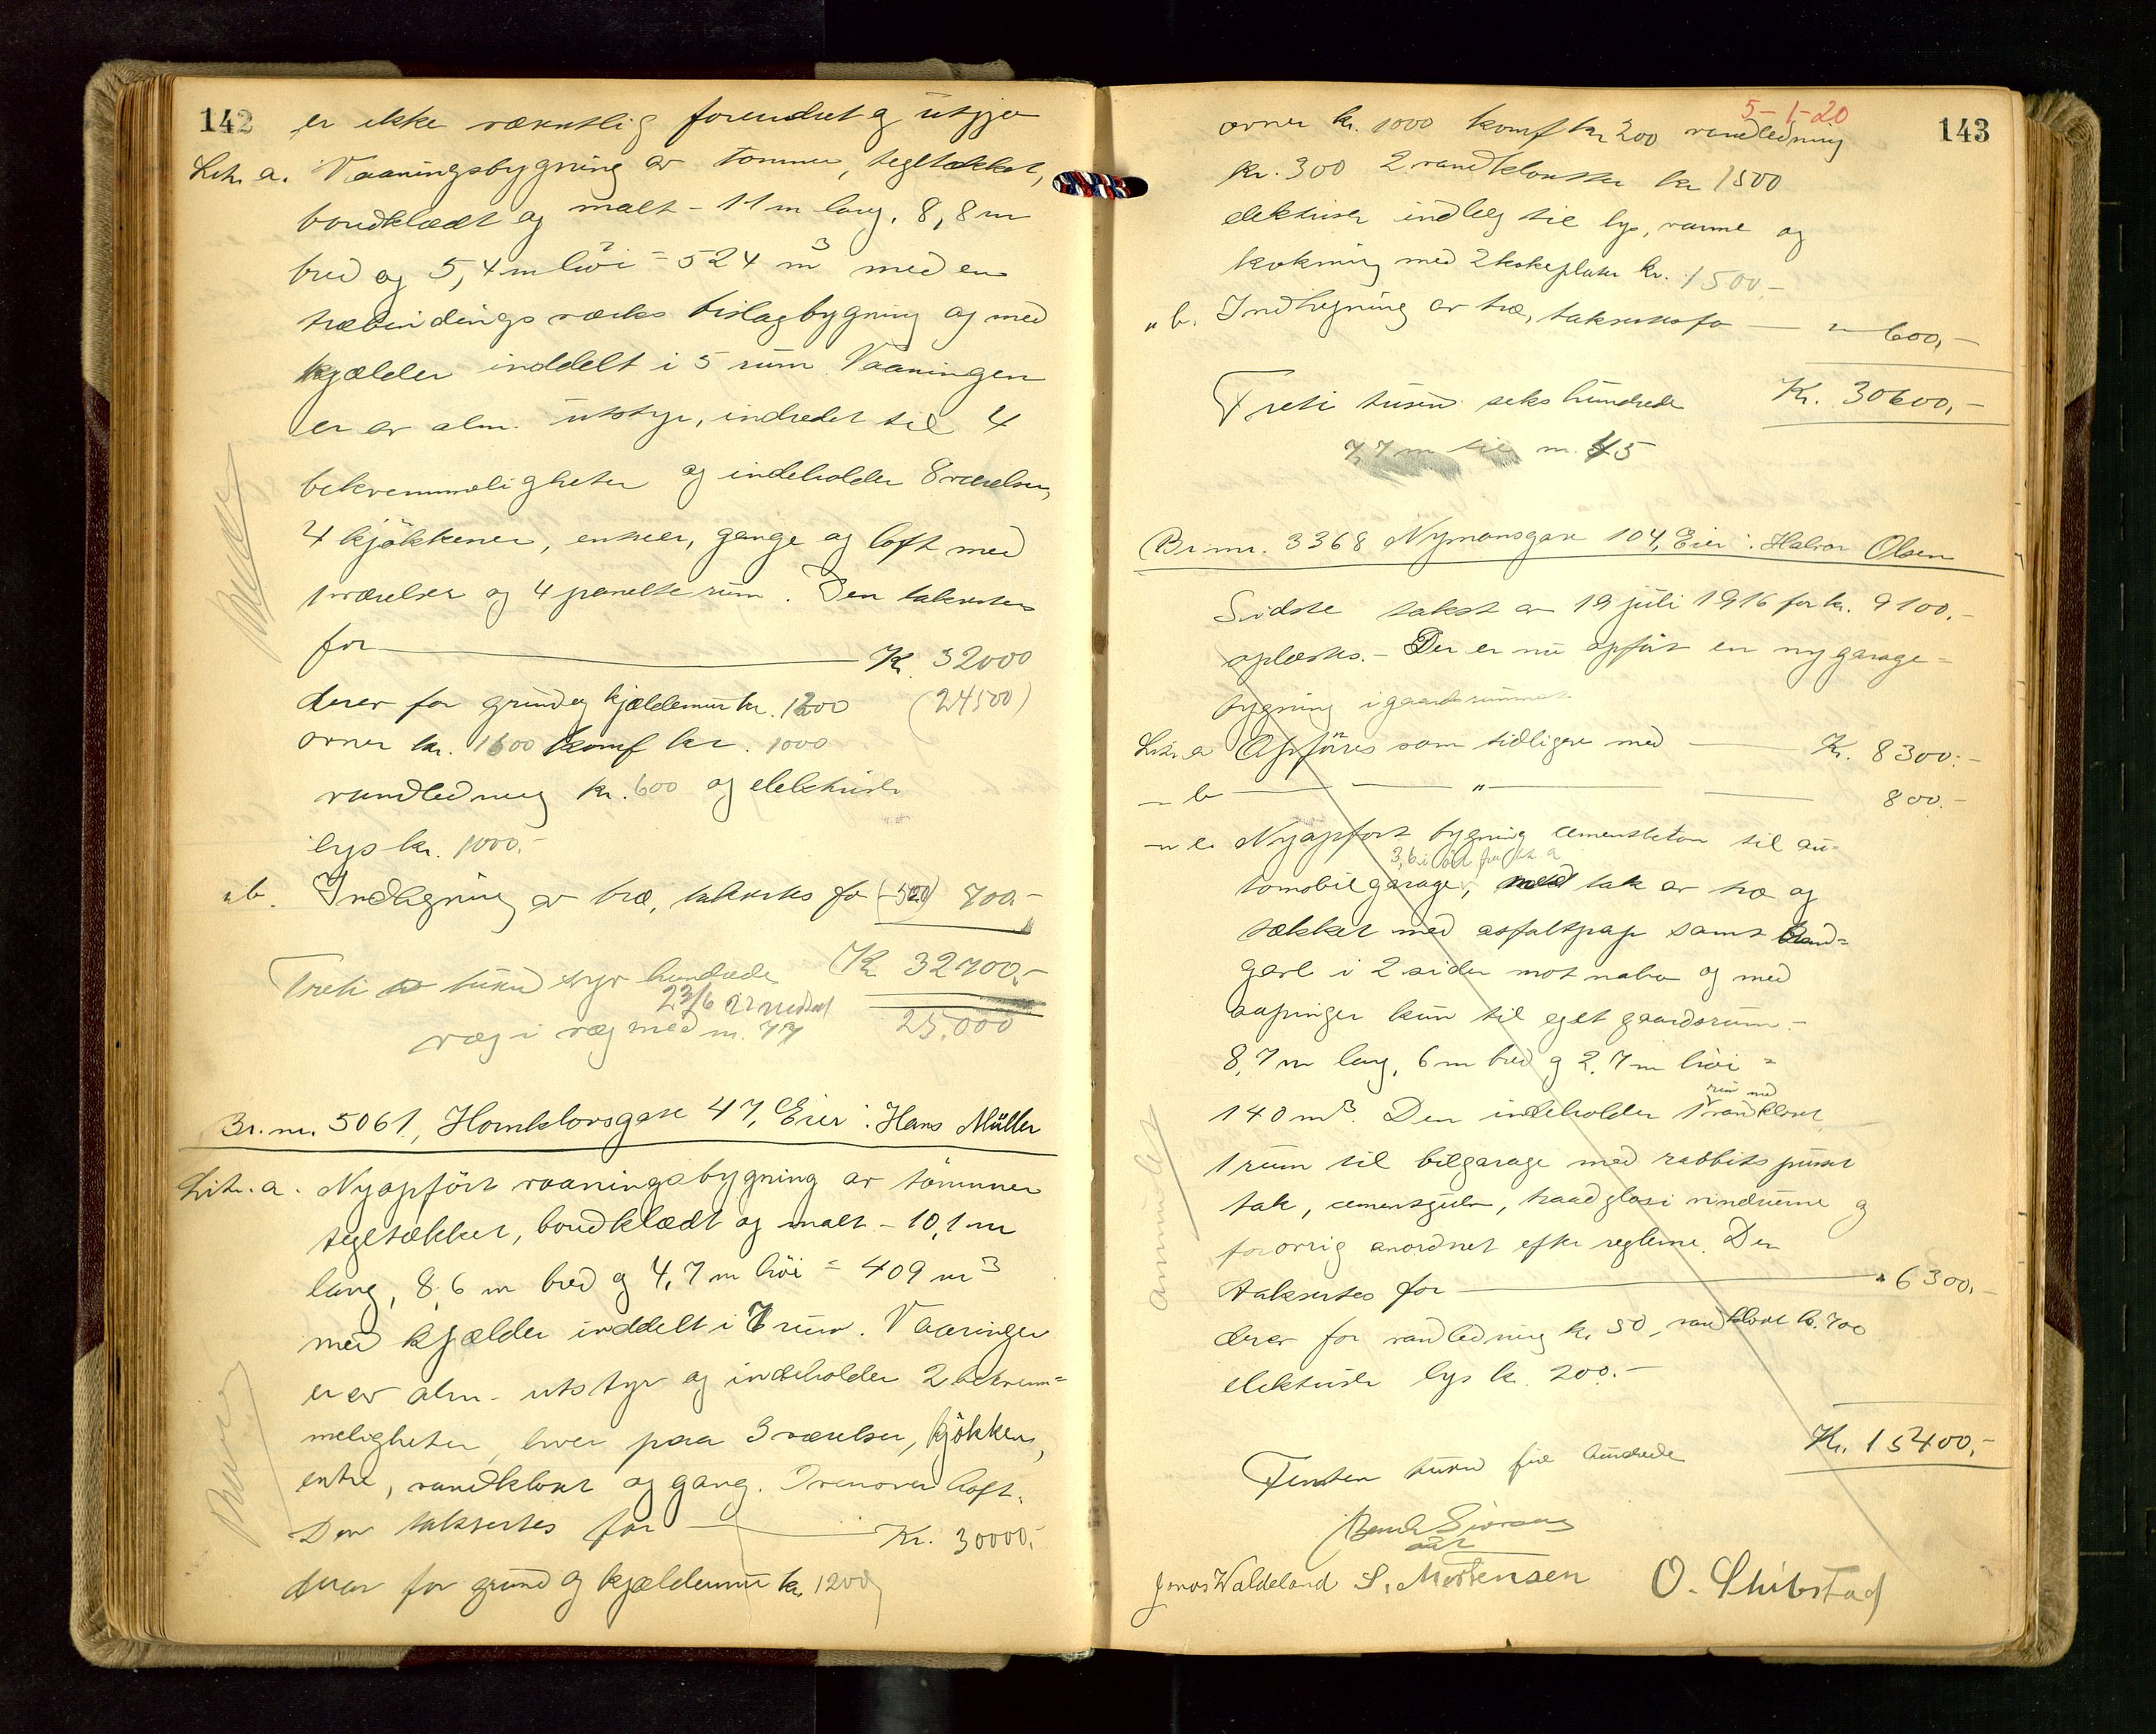 142
er ikke væsentlig forandret og utgjør
Litr. a. Vaaningsbygning av tømmer, tegltækket,
bordklædt og malt - 11 m lang, 8,8 m
bred og 5,4 m høi = 524 m³ med en
træbindingsverks bislagbygning og med
kjælder inddelt i 5 rum. Vaaningen
er av alm. utstyr, indredet til 4
bekvemmeligheter og indeholder 8 værelser,
4 kjøkkener, entreer, gange og loft med
1 værelser og 4 panelte rum. Den takseres
for Kr. 32000
derav for grund og kjældermur kr. 1200 (24500)
ovner kr. 1600 komf kr. 1000
vandledning kr. 600 og elektrisk
lys kr. 1000.-
" b. Indhegning av træ, takseres for (500) 700.-
Treti to tusen syv hundrede Kr 32700.-
23/6 22 nedsat
væg i væg med m. 47 25.000
Br. nr. 5061, Hornklovsgate 47, Eier: Hans Müller
Litr. a. Nyopført vaaningsbygning av tømmer
tegltækket, bordklædt og malt - 10,1 m
lang, 8,6 m bred og 4,7 m høi = 409 m³
med kjælder inddelt i 7 rum. Vaaningen
er av alm. utstyr og indeholder 2 bekvem=
meligheter, hver paa 3 værelser, kjøkken,
entre, vandklosæt og gang. Ovenover loft.
Den taksertes for Kr. 30000.-
derav for grund og kjældermur kr. 1200,
143
5-1-20
ovner kr. 1000 komf kr 200 vandledning
kr. 300 2 vandklosetter kr 1500
elektrisk indlæg til lys, varme og
kokning med 2 kokeplater kr. 1500.-
" b. Indhegning av træ, taksertes for " 600,-
Treti tusen seks hundrede Kr. 30600,-
7,7 m til m. 45
Br. nr. 3368 Nymansgate 104, Eier: Halvor Olsen
Sidste takst av 19 juli 1916 for kr. 9100.-
oplæstes. - Der er nu opført en ny garage=
bygning i gaardsrummet
Litr. a Opføres som tidligere med Kr. 8300.-
" b " 800.-
" c. Nyopført bygning cementbeton til au-
3,6 i øst fra lit. a
tomobilgarage, med tak av træ og
tækket med asfaltpap samt brand=
gavl i 2 sider mot nabo og med
aapninger kun til eget gaardsrum.-
8,7 m lang, 6 m bred og 2,7 m høi =
140 m³. Den indeholder 1 rum med vandklosæt
1 rum til bilgarage med rabbits pusset
tak, cementgulv, traadglas i vinduerne og
forøvrig anordnet efter reglerne. Den
taksertes for " 6300.-
derav for vandledning kr. 50, vandklosæt kr. 700
elektrisk lys kr. 200.-
Femten tusen fire hundrede Kr. 15400,-
Jonas Waldeland S. Mortensen O. Skibstad
annuleret